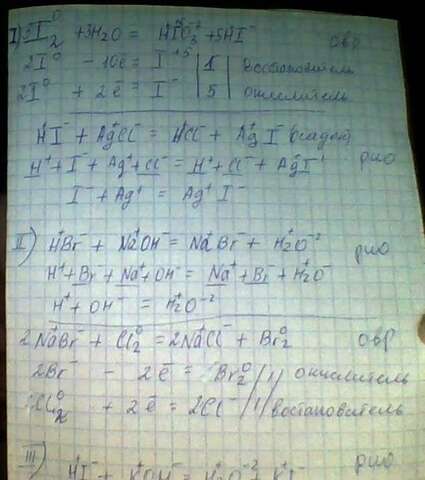 I) 3I₂⁰ + 3H₂O = HIO₃ + 5HI⁻ овр
2I⁰ - 10ē = I⁺⁵ | 1 | востановитель
2I⁰ + 2ē = I⁻ | 5 | окислитель
H⁺I⁻ + Ag⁺Cl⁻ = H⁺Cl⁻ + Ag⁺I⁻ осадок
H⁺ + I⁻ + Ag⁺ + Cl⁻ = H⁺ + Cl⁻ + AgI рио
I⁻ + Ag⁺ = Ag⁺I⁻
II) H⁺Br⁻ + Na⁺OH⁻ = Na⁺Br⁻ + H₂⁺O⁻² рио
H⁺ + Br⁻ + Na⁺ + OH⁻ = Na⁺ + Br⁻ + H₂O⁻
H⁺ + OH⁻ = H₂⁺O⁻²
2Na⁺Br⁻ + Cl₂⁰ = 2Na⁺Cl⁻ + Br₂⁰ овр
2Br⁻ - 2ē = Br₂⁰ | 1 | окислитель
Cl₂⁰ + 2ē = 2Cl⁻ | 1 | востановитель
III) рио
H⁺I⁻ + K⁺OH⁻ = H₂⁺O⁻² + K⁺I⁻